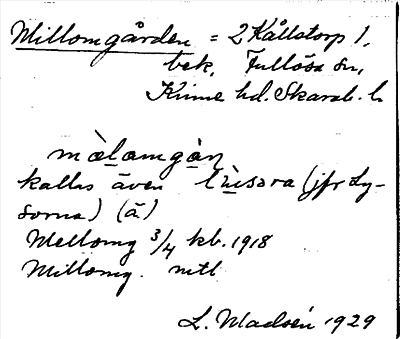 Millomgården = 2 Kållstorp 1,
bek. Fullösa sn,
Kinne hd. Skarab. l.
mæ̀lamgàn
kallas även lùsara (jfr Ly-
sorna) (ä)
Mellomg 3/4 kb. 1918
Millomg. mtl
L. Madsén 1929